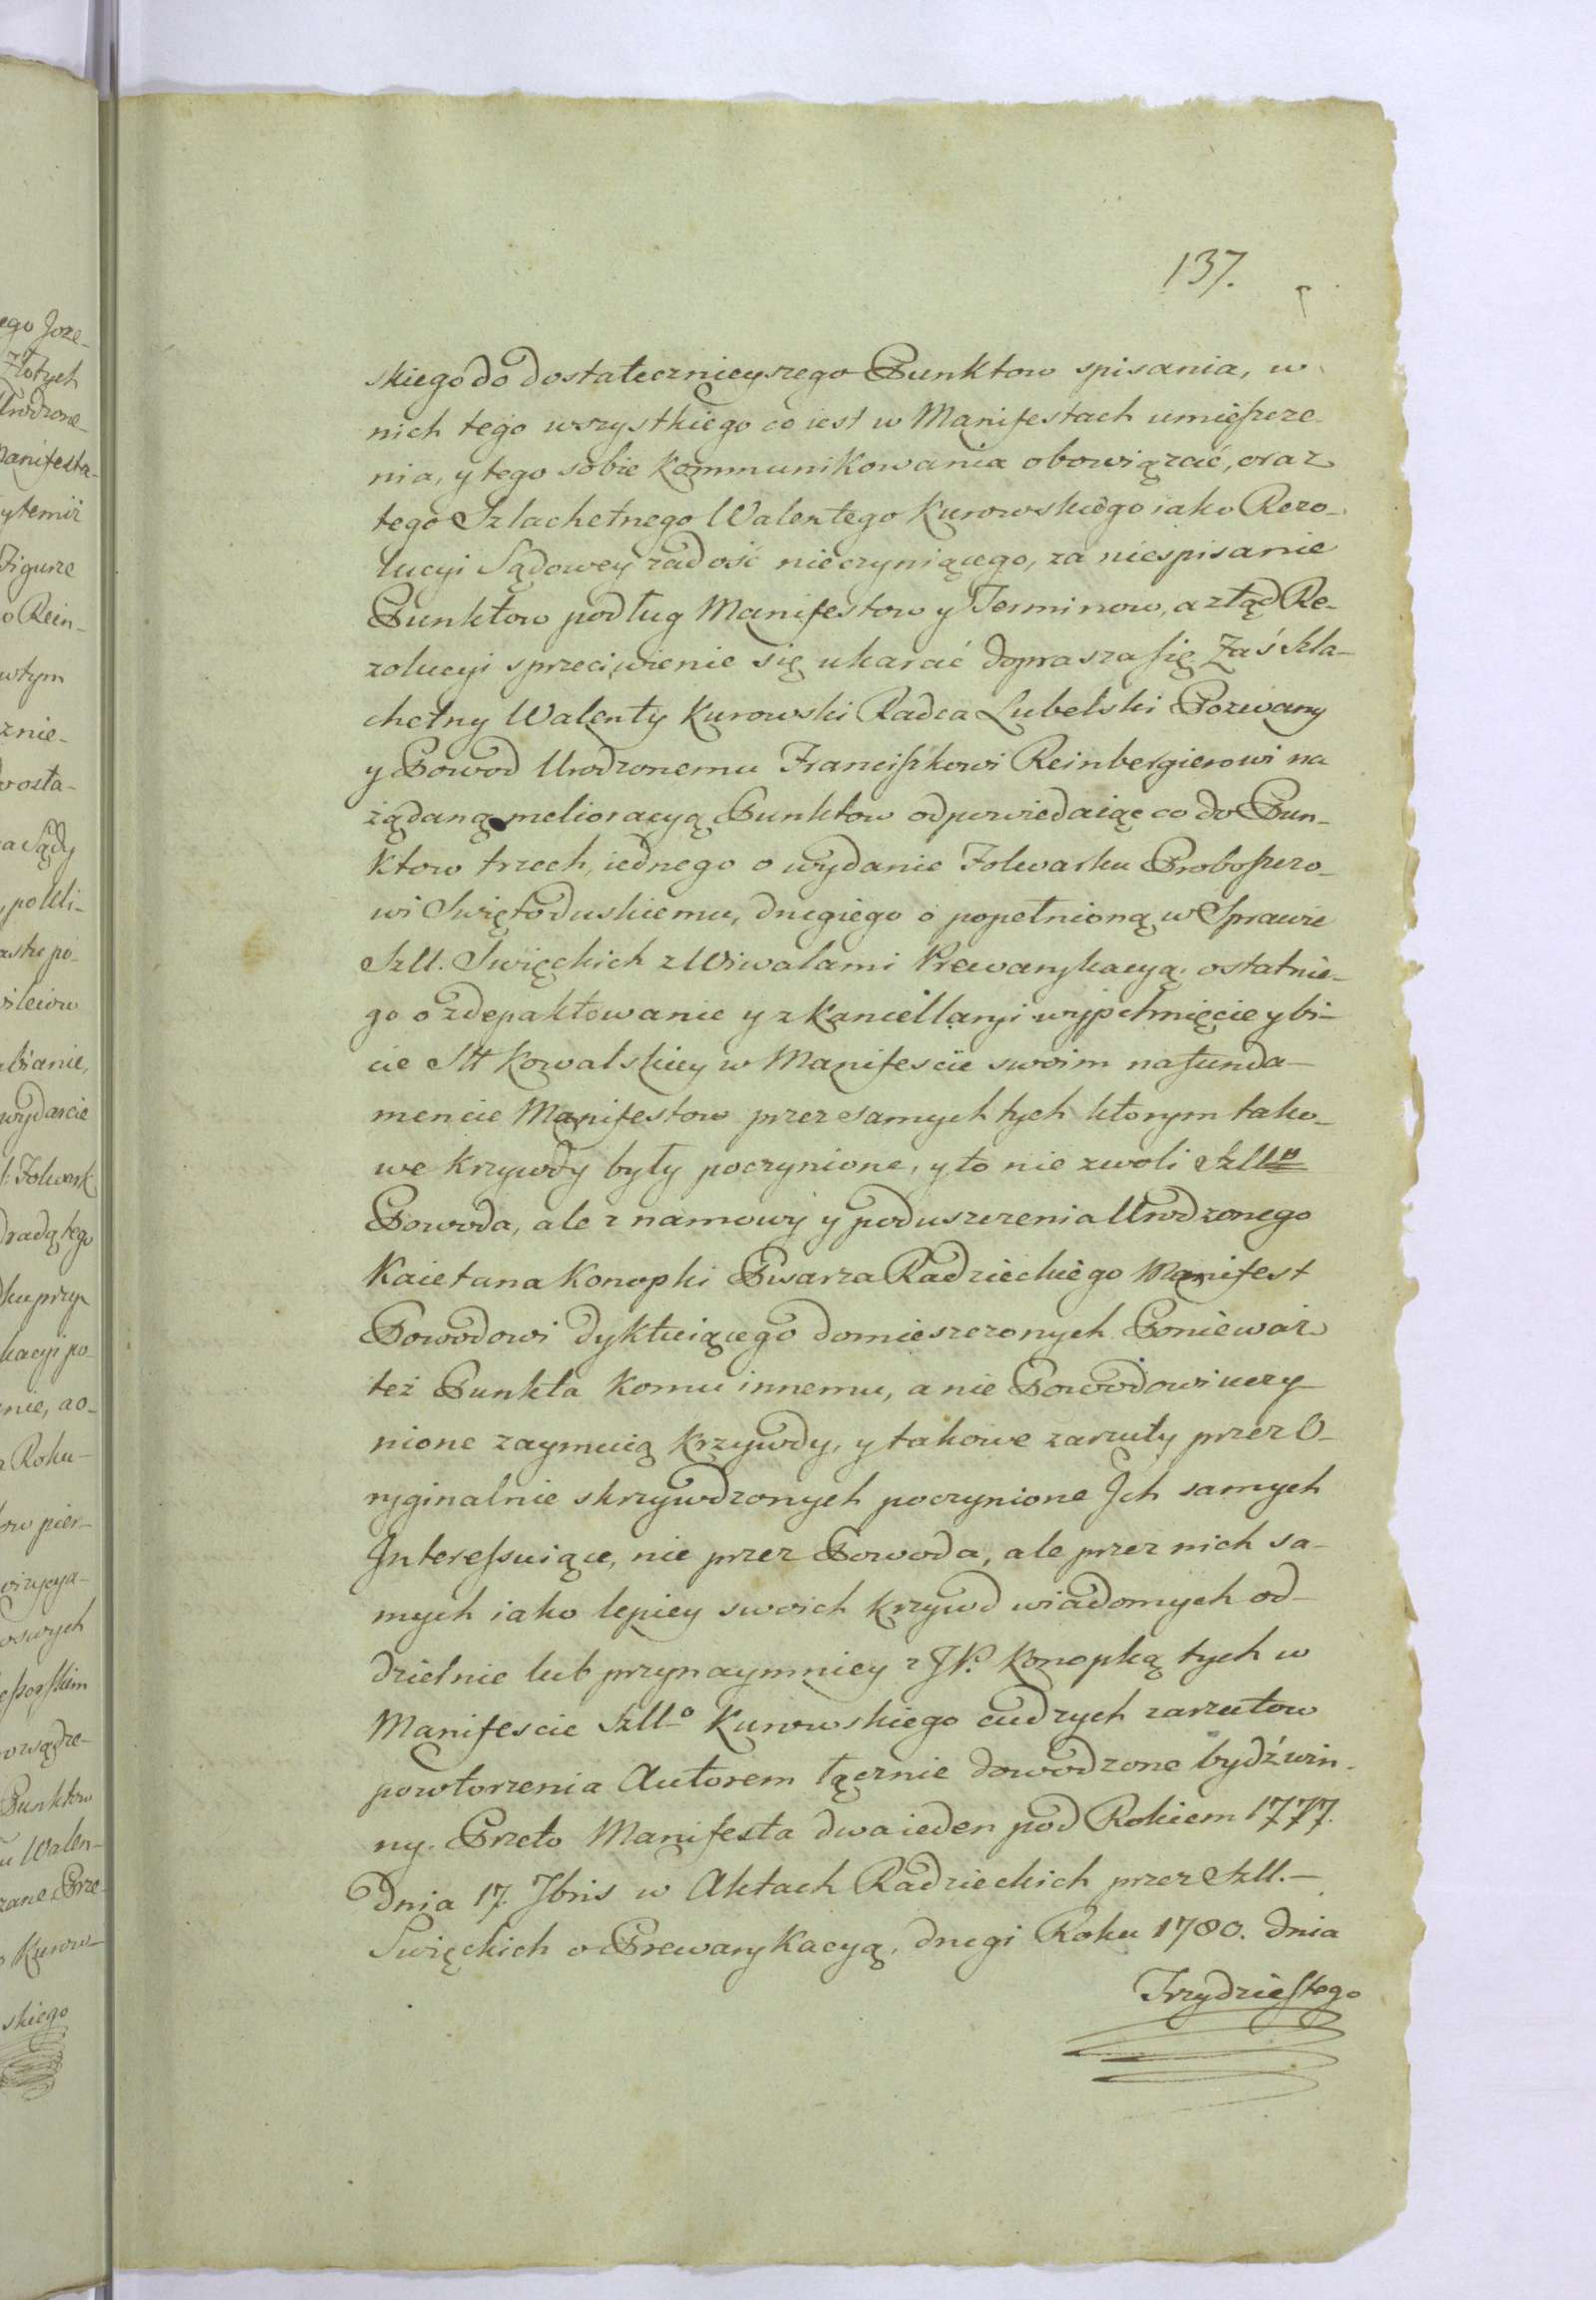 137.
skiego do dostatecznieyszego Punktow spisania, w
nich tego wszystkiego co iest w Manifestach umieszcze
nia, y tego sobie kommunikowania obowiązać, oraz
tego Szlachetnego Walentego Kurowskiego iako Rezo-
lucyi Sądowey zadość nieczyniącego, za niespisanie
Punktow podług Manifestow y Terminow, a ztąd Re-
zolucyi sprzeciwienie się ukarać doprasza się. Zaś Szla-
chetny Walenty Kurowski Radca Lubelski Pozwany
y Powod Urodzonemu Franciszkowi Reinbergierowi na
żądaną melioracyą Punktow odpowiedaiąc co do Pun-
ktow trzech, iednego o wydanie Folwarku Proboszczo-
wi Swiętoduskiemu, drugiego o popełnioną w Sprawie
Szll. Swięckich z Wiwalami Prewarykacyą, ostatnie-
go o zdepaktowanie y z Kancellaryi wypchnięcie y bi-
cie Sll Kowalskiey w Manifescie swoim na funda-
mencie Manifestow przez samych tych ktorym tako-
we krzywdy były poczynione, y to nie z woli Szllo
Powoda, ale z namowy y poduszczenia Urodzonego
Kaietana Konopki Pisarza Radzieckiego Manifest
Powodowi dyktuiącego domieszczonych. Ponieważ
też Punkta komu innemu, a nie Powodowi uczy-
nione zaymuią krzywdy, y takowe zarzuty przez O-
ryginalnie skrzywdzonych poczynione Jch samych
Jnteressuiące, nie przez Powoda, ale przez nich sa-
mych iako lepiey swoich krzywd wiadomych od-
dzielnie lub przynaymniey z JP. Konopką tych w
Manifescie Szllo Kurowskiego cudzych zarzutow
powtorzenia Autorem łącznie dowodzone bydź win-
ny. Przeto Manifesta dwa ieden pod Rokiem 1777.
Dnia 17. 7bris w Aktach Radzieckich przez Szll.-
Swięckich o Prewarykacyą, drugi Roku 1780. dnia
Trzydziestego